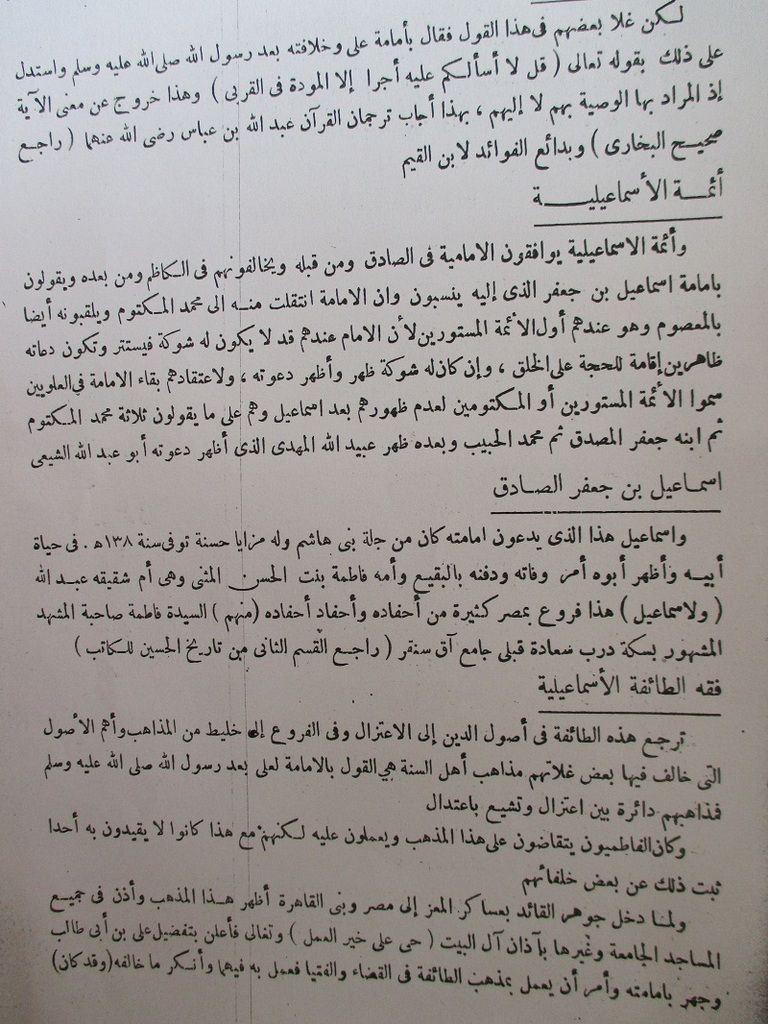 لكن غلا بعضهم فى هذا القول فقال بأمامة على وخلافته بعد رسول الله صلى الله عليه وسلم واستدل
على ذلك بقوله تعالى ( قل لا أسألكم عليه أجرا إلا المودة فى القربى ) وهذا خروج عن معنى الآية
إذ المراد بها الوصية بهم لا إليهم ، بهذا أجاب ترجمان القرآن عبد الله بن عباس رضى الله عنهما ( راجع
صحيح البخارى ) وبدائع الفوائد لابن القيم
أئمة الأسماعيلية
وأئمة الاسماعيلية يوافقون الامامية فى الصادق ومن قبله ويخالفونهم فى الكاظم ومن بعده ويقولون
بامامة اسماعيل بن جعفر الذى إليه ينسبون وان الامامة انتقلت منه الى محمد المكتوم ويلقبونه أيضا
بالمعصوم وهو عندهم أول الأئمة المستورين لأن الامام عندهم قد لا يكون له شوكة فيستتر وتكون دعاته
ظاهرين إقامة للحجة على الخلق ، وإن كان له شوكة ظهر وأظهر دعوته ، ولاعتقادهم بقاء الامامة فى العلويين
سموا الأئمة المستورين أو المكتومين لعدم ظهورهم بعد اسماعيل وهم على ما يقولون ثلاثة محمد المكتوم
ثم ابنه جعفر المصدق ثم محمد الحبيب وبعده ظهر عبيد الله المهدى الذى أظهر دعوته أبو عبد الله الشيعى
اسماعيل بن جعفر الصادق
واسماعيل هذا الذى يدعون امامته كان من جلة بنى هاشم وله مزايا حسنة توفى سنة ١٣٨ هـ . فى حياة
أبيه وأظهر أبوه أمر وفاته ودفنه بالبقيع وأمه فاطمة بنت الحسن المثنى وهى أم شقيقه عبد الله
( ولاسماعيل ) هذا فروع بمصر كثيرة من أحفاده وأحفاد أحفاده (منهم ) السيدة فاطمة صاحبة المشهد
المشهور بسكة درب سعادة قبلى جامع آق سنقر ( راجع القسم الثانى من تاريخ الحسين للكاتب )
فقه الطائفة الأسماعيلية
ترجع هذه الطائفة فى أصول الدين إلى الاعتزال وفى الفروع إلى خليط من المذاهب وأهم الأصول
التى خالف فيها بعض غلاتهم مذاهب أهل السنة هي القول بالامامة لعلى بعد رسول الله صلى الله عليه وسلم
فمذاهبهم دائرة بين اعتزال وتشيع باعتدال
وكان الفاطميون يتقاضون على هذا المذهب ويعملون عليه لكنهم مع هذا كانوا لا يقيدون به أحدا
ثبت ذلك عن بعض خلفائهم
ولما دخل جوهر القائد بعساكر المعز إلى مصر وبنى القاهرة أظهر هذا المذهب وأذن فى جميع
المساجد الجامعة وغيرها بآذان آل البيت ( حى على خير العمل ) وتغالى فأعلن بتفضيل على بن أبى طالب
وجهر بامامته وأمر أن يعمل بمذهب الطائفة فى القضاء والفتيا فعمل به فيهما وأنكر ما خالفه (وقد كان)